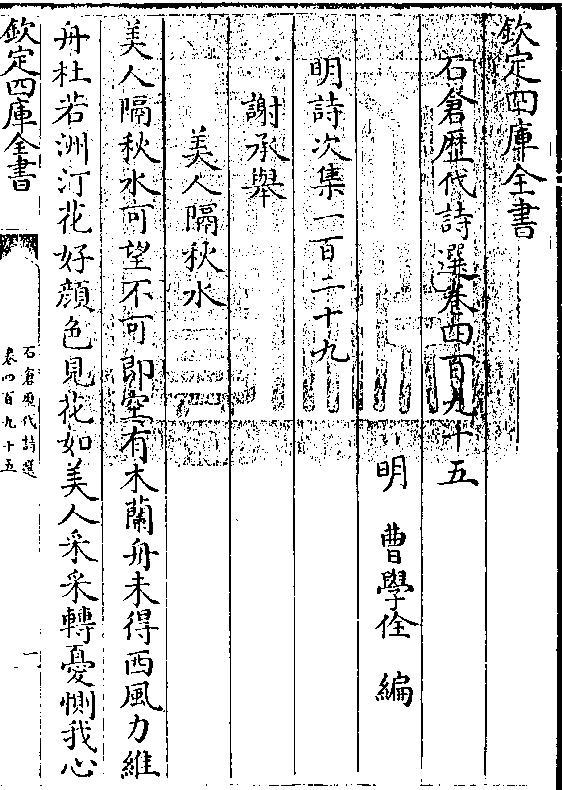 欽定四庫全書
石倉歴代詩選卷四百九十五
明 曹學佺 編
明詩次集一百二十九
謝承舉
美人隔秋水
美人隔秋水可望不可即空有木蘭舟未得西風力維
舟杜若洲汀花好顔色見花如美人采采轉憂惻我心
欽定四庫全書
石倉歴代詩選
卷四百九十五
一